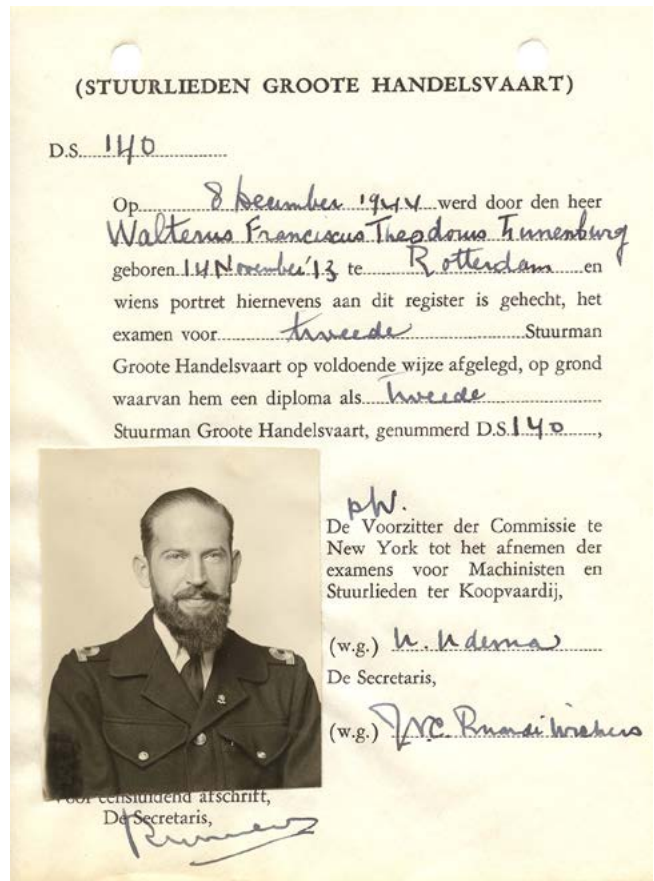 (STUURLIEDEN GROOTE HANDELSVAART)
D.S. 140
Op 8 December 1944 werd door den heer
Walterus Franciscus Theodorus
geboren 14 November '13 te Rotterdam en
wiens portret hiernevens aan dit register is gehecht, het
examen voor tweede Stuurman
Groote Handelsvaart op voldoende wijze afgelegd, op grond
waarvan hem een diploma als tweede
Stuurman Groote Handelsvaart, genummerd D.S. 140,
De Voorzitter der Commissie te
New York tot het afnemen der
examens voor Machinisten en
Stuurlieden ter Koopvaardij,
(w.g.)
De Secretaris,
(w.g.)
Voor eensluidend afschrift,
De Secretaris,